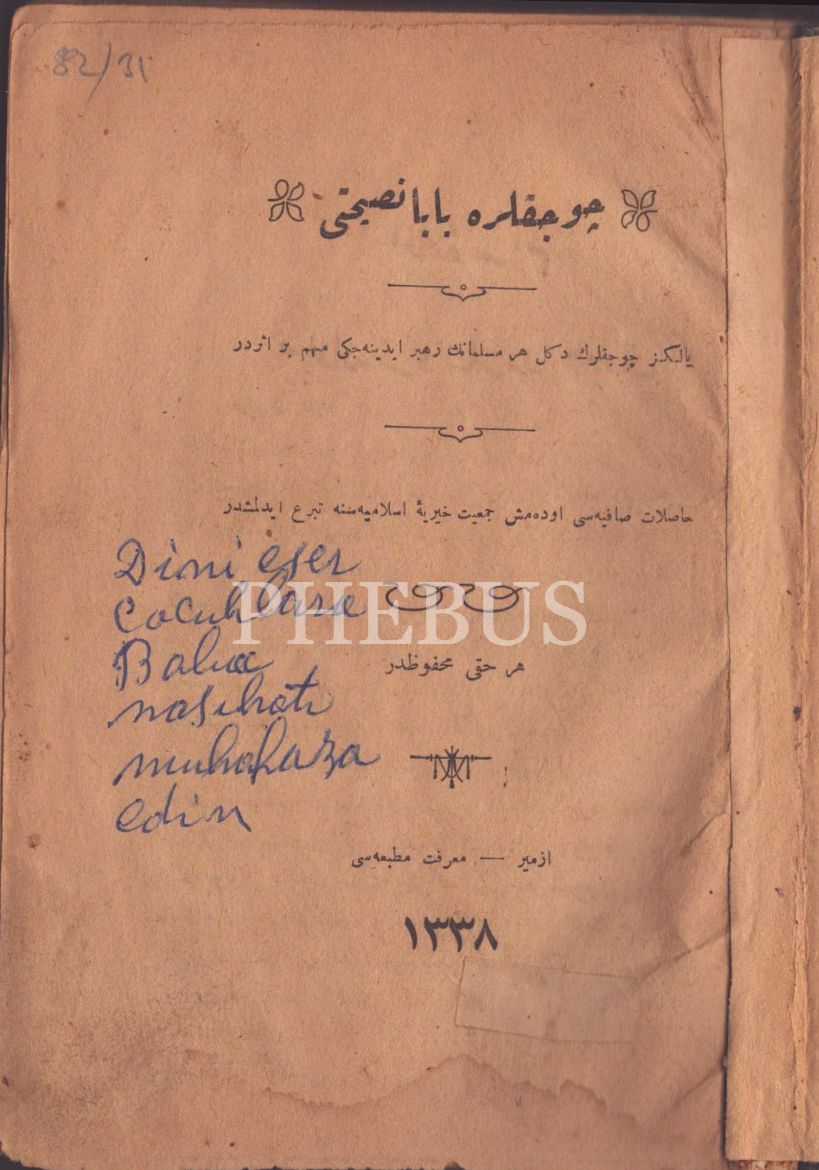 82/31
چوجقلره بابا نصیحتی
یالـكـز چوجقلرك دكل هر مسلمانك رهبر ایدینه‌جكی مهم بر اثردر
حاصلات صافیه‌سی اوده‌مش جمعیت خیریۀ اسلامیه‌سنه تبرع ایدلمشدر
Dini eser
Cocuklara
PHEBUS
Baba
هر حقی محفوظدر
nasihatı
muhafaza
edin
ازمیر — معرفت مطبعه‌سی
١٣٣٨